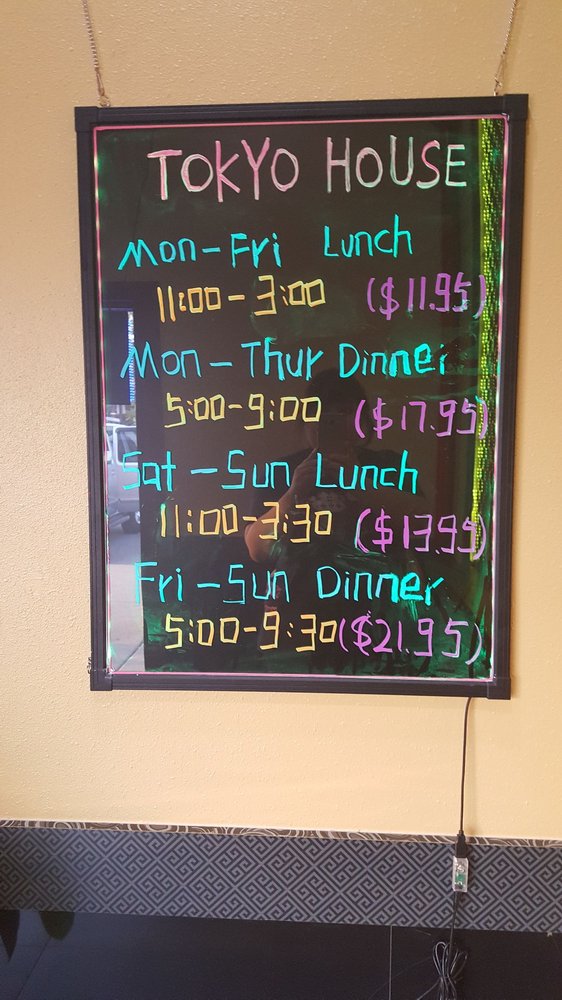 TOKYO HOUSE
Mon-Fri Lunch
11:00-3:00 ($11.95)
Mon-Thur Dinner
5:00-9:00 ($17.95)
Sat-Sun Lunch
11:00-3:30 ($13.95)
Fri-Sun Dinner
5:00-9:30 ($21.95)